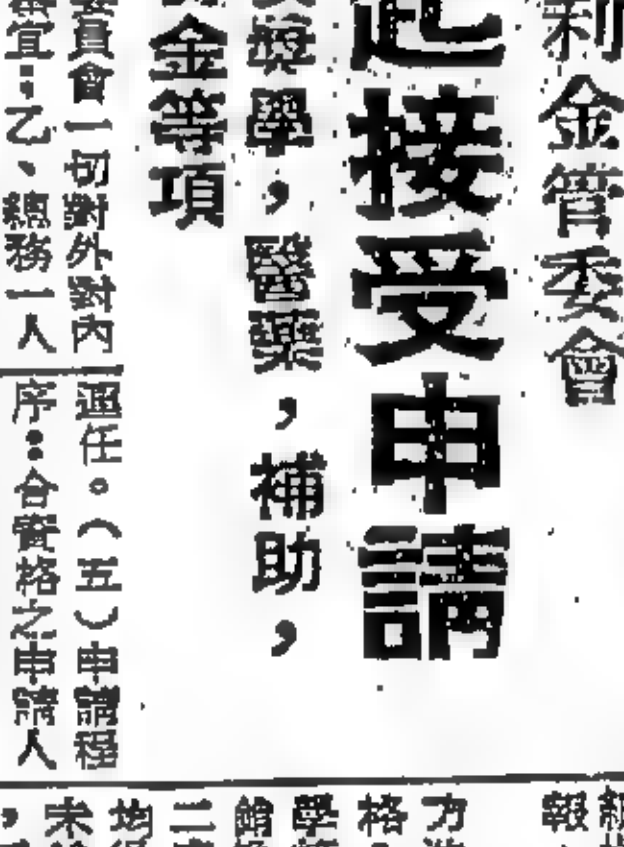 利金管委會
起接受申請
獎學，醫藥，補助，
金等項
委員會一切對外對內
宜：乙、總務一人
連任。（五）申請程
序：合資格之申請人
報
方
格
學
館
二
均
未